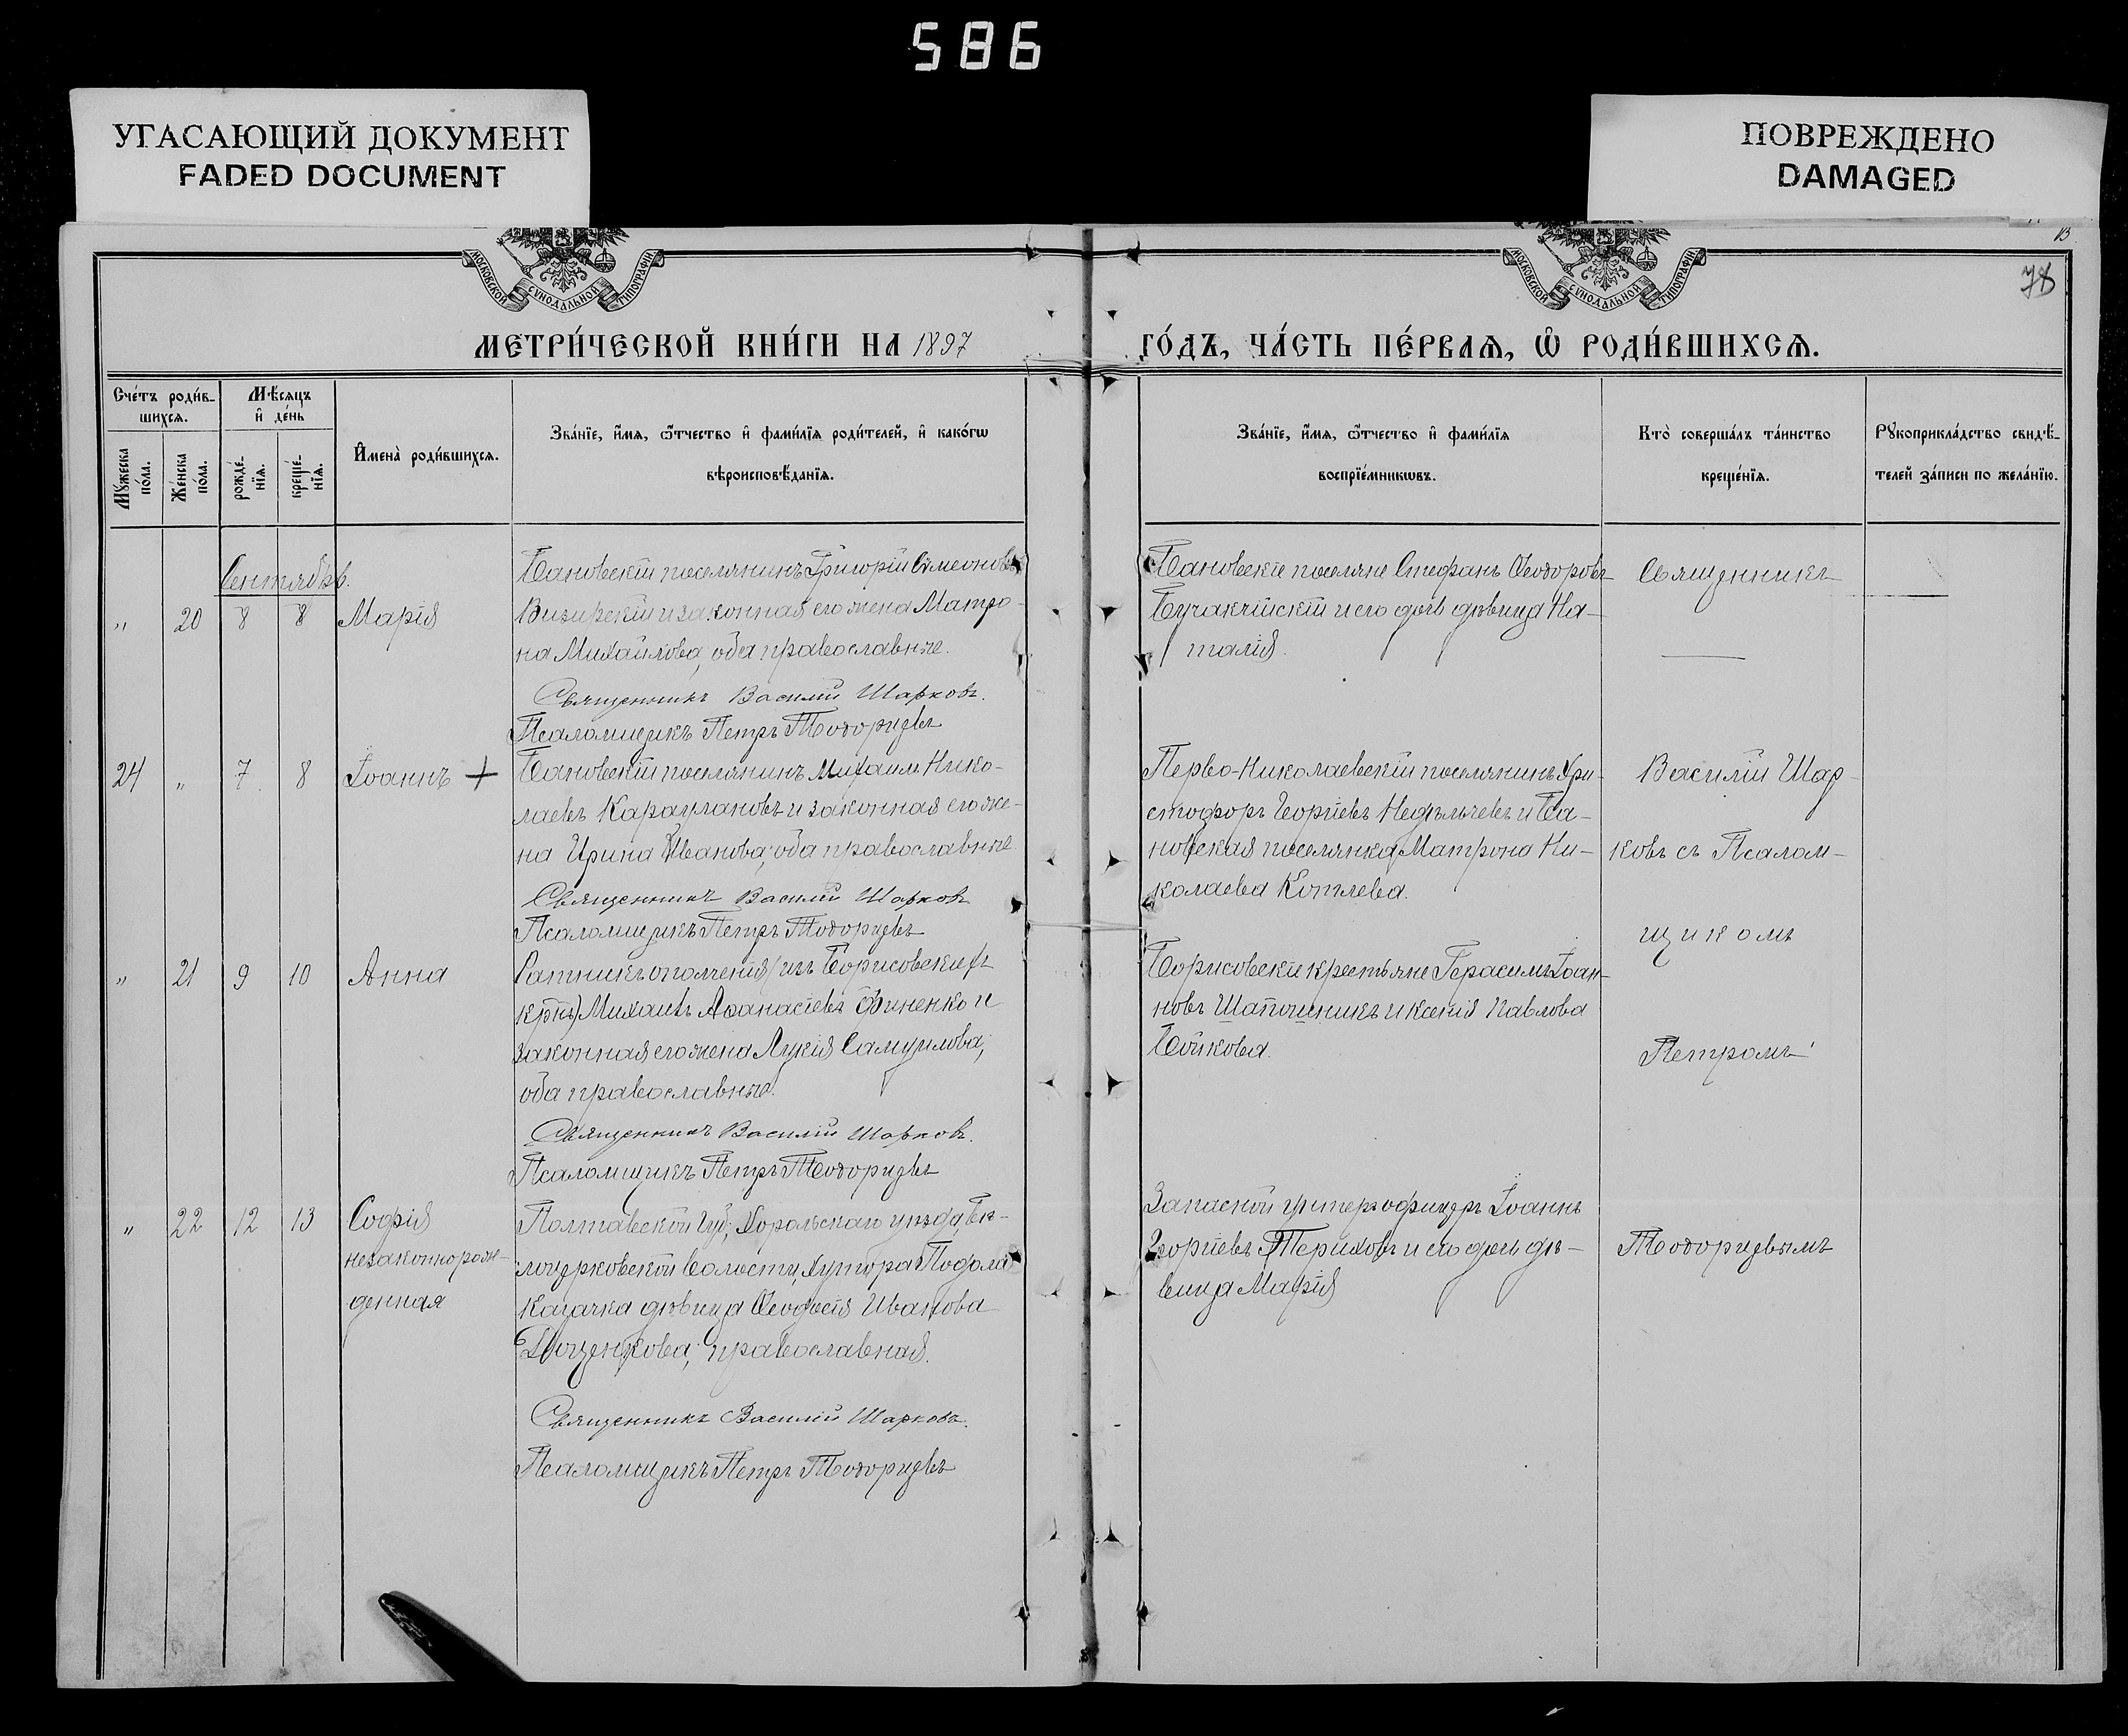 586
УГАСАЮЩИЙ ДОКУМЕНТ
FADED DOCUMENT
ПОВРЕЖДЕНО
DAMAGED
МОСКОВСКОЙ СѴНОДАЛЬНОЙ ТИПОГРАФІИ
МОСКОВСКОЙ СѴНОДАЛЬНОЙ ТИПОГРАФІИ
13
78
МЕТРИ́ЧЕСКОЙ КНИ́ГИ НА 1897
ГО́ДЪ, ЧА́СТЬ ПЕ́РВАѦ, Ѡ҆ РОДИ́ВШИХСѦ.
Сче́тъ роди́в-
шихсѧ.
Мѣ́сѧцъ
и҆ де́нь
Мꙋ́жеска по́ла.
Же́нска по́ла.
рожде́-
нїѧ.
креще́-
нїѧ.
И҆мена̀ роди́вшихсѧ.
Зва́нїе, и҆́мѧ, ѻ҆́тчество и҆ фами́лїѧ роди́телей, и҆ како́гѡ
вѣроисповѣ́данїѧ.
Зва́нїе, и҆́мѧ, ѻ҆́тчество и҆ фами́лїѧ
воспрїе́мникѡвъ.
Кто̀ соверша́лъ та́инство
креще́нїѧ.
Рꙋкоприкла́дство свидѣ́-
телей за́писи по жела́нїю.
Сентябрь.
" 20 8 8 Марія
Бановскій поселянинъ Григорій Симеоновъ
Визирскій и законная его жена Матро-
на Михайлова, оба православные.
Священникъ Василій Шарковъ.
Псаломщикъ Петръ Тодорцевъ
Бановскіе поселяне Стефанъ Ѳеодоровъ
Бучакчійскій и его дочь дѣвица На-
талія.
Священникъ
24 " 7 8 Іоаннъ +
Бановскій поселянинъ Михаилъ Нико-
лаевъ Караулановъ и законная его же-
на Ирина Иванова; оба православные
Священникъ Василій Шарковъ
Псаломщикъ Петръ Тодорцевъ
Перво-Николаевскій поселянинъ Хри-
стофоръ Георгіевъ Недѣльчевъ и Ба-
новская поселянка Матрона Ни-
колаева Коплева.
Василій Шар-
ковъ съ Псалом-
щикомъ
" 21 9 10 Анна
Ратникъ ополченія (изъ Борисовскихъ
крнъ) Михаилъ Аѳанасіевъ Финенко и
законная его жена Лукія Самуилова;
оба православные.
Священникъ Василій Шарковъ.
Псаломщикъ Петръ Тодорцевъ
Борисовскіе крестьяне Герасимъ Іоан-
новъ Шапошникъ и Ксенія Павлова
Бойкова.
Петромъ
" 22 12 13 Софія
незаконнорож-
денная
Полтавской Губ, Хорольскаго уѣзда, Бѣ-
лоцерковской волости, хутора Подола
Козачка дѣвица Ѳеодосія Иванова
Доценкова; православная.
Священникъ Василій Шарковъ.
Псаломщикъ Петръ Тодорцевъ
Запасной унтеръ офицеръ Іоаннъ
Георгіевъ Териховъ и его дочь дѣ-
вица Марія
Тодорцевымъ